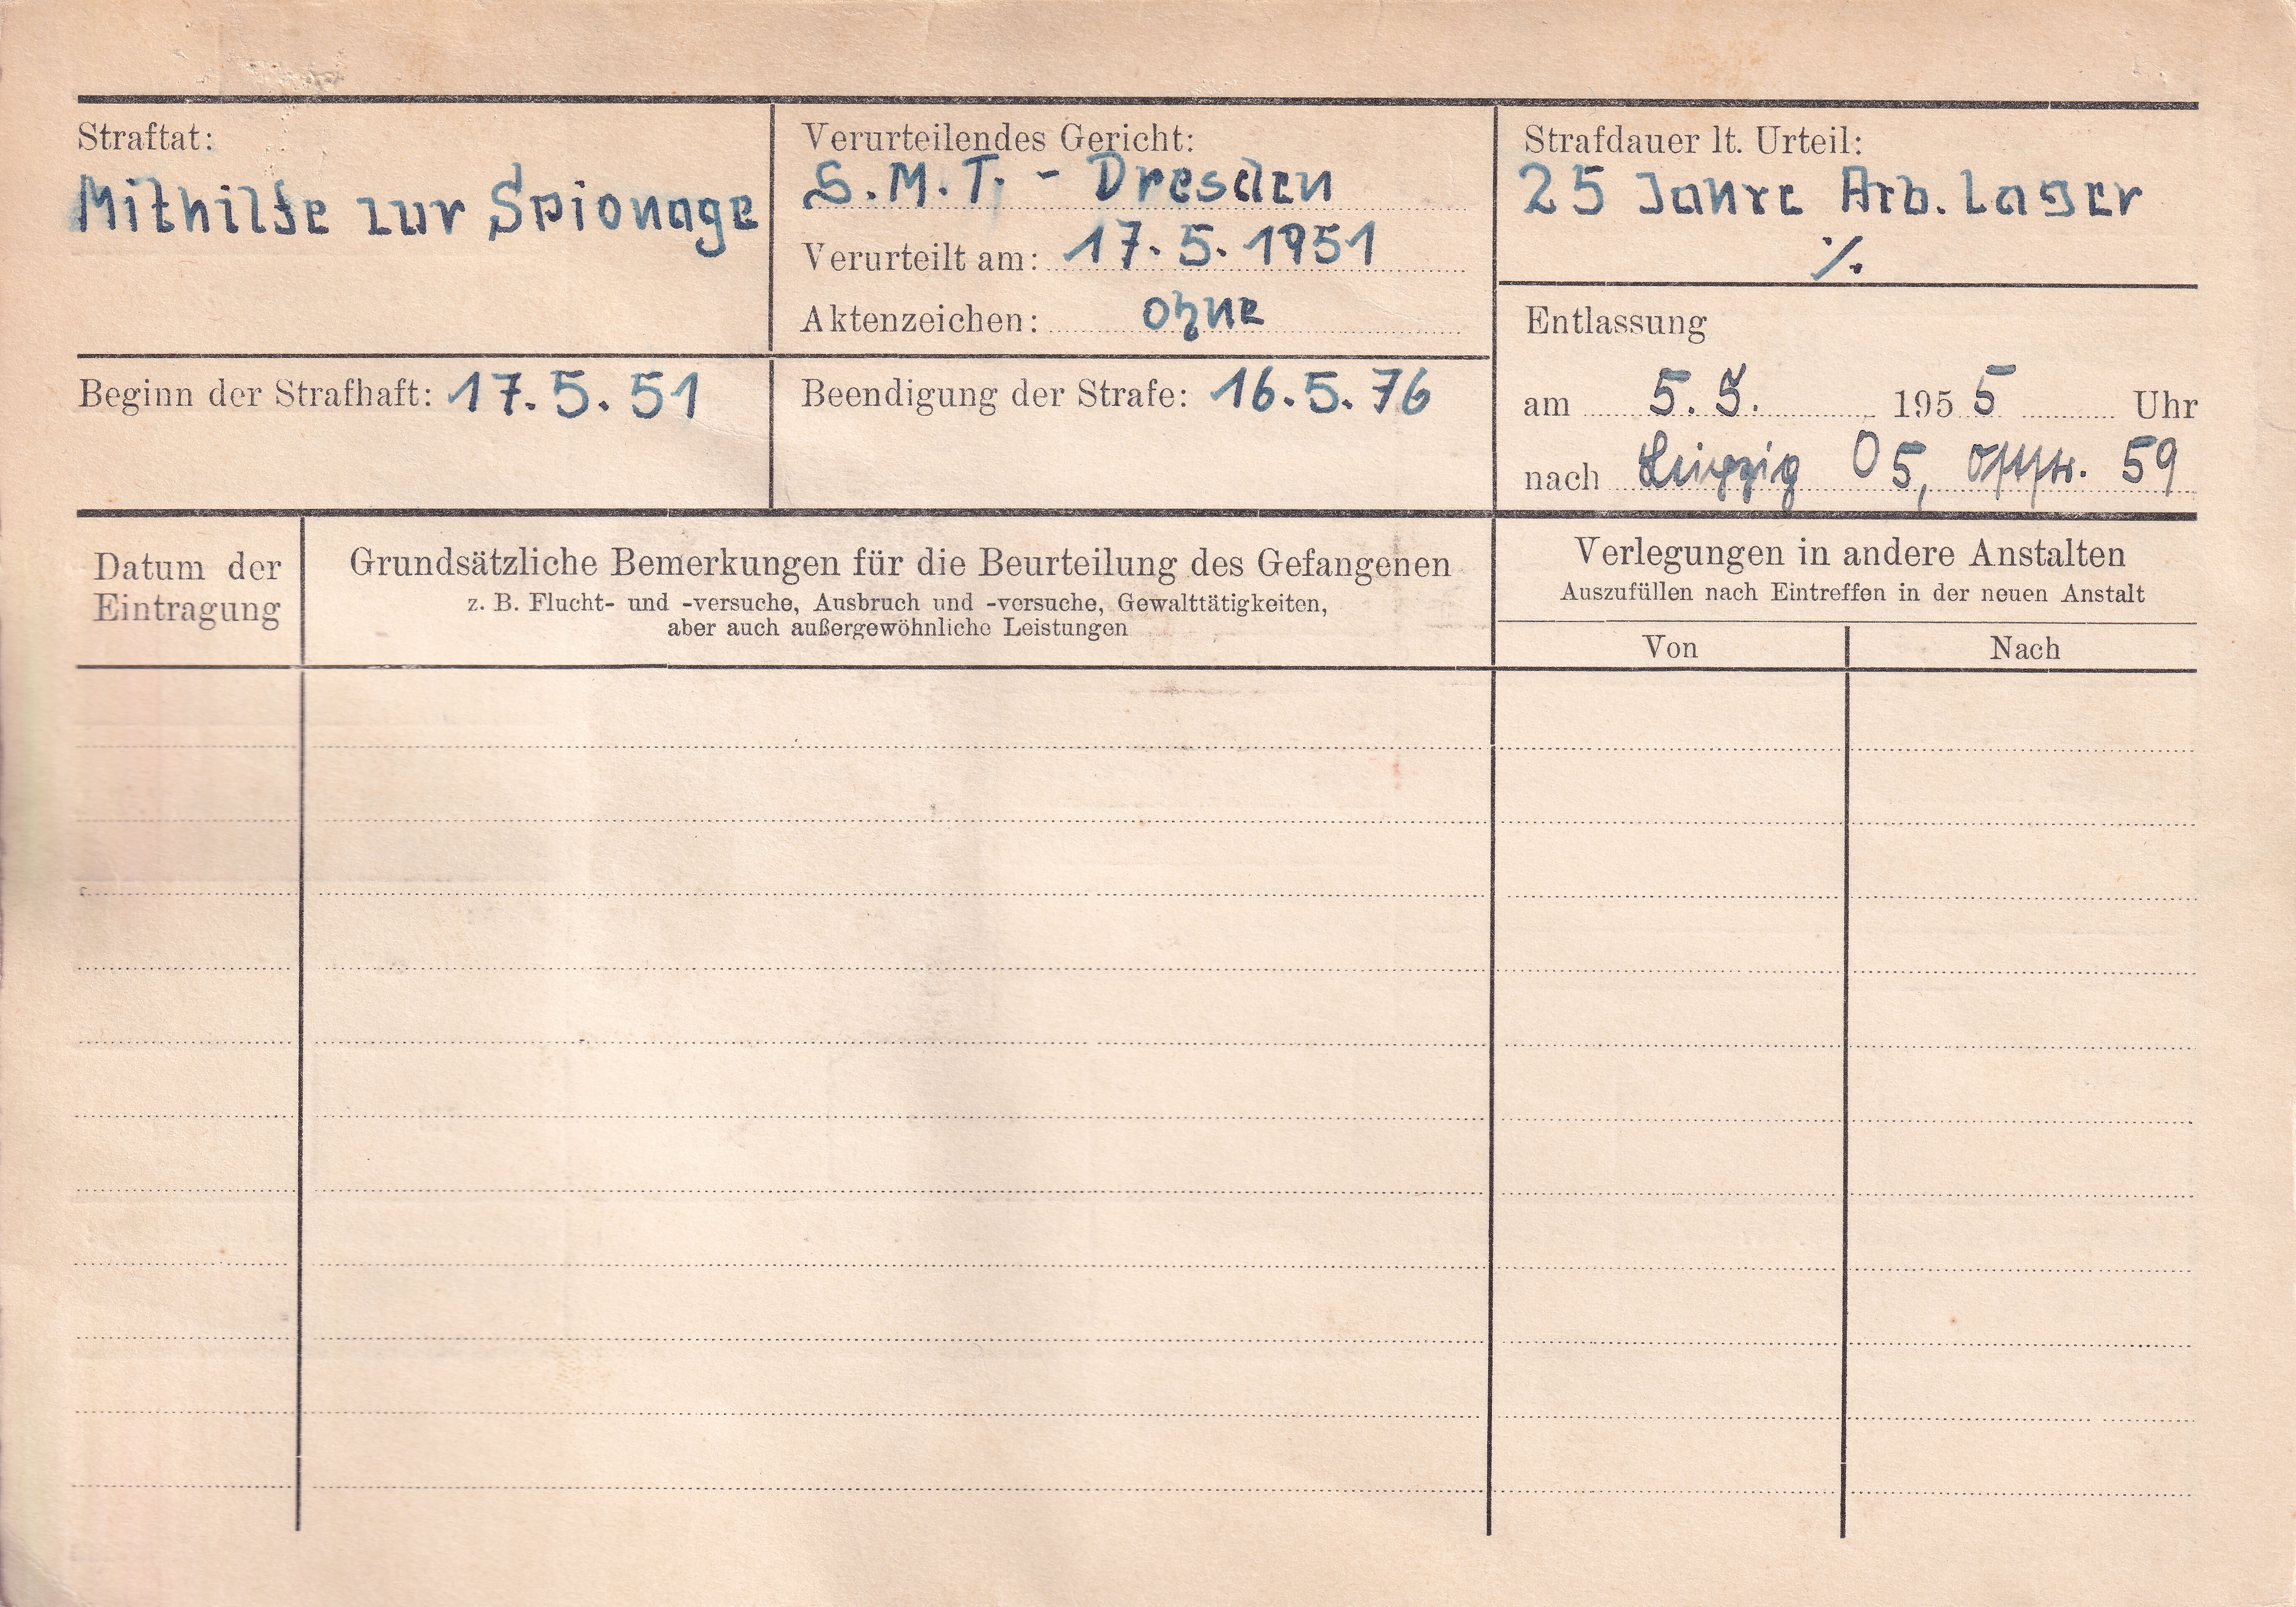 Straftat:
Mithilfe zur Spionage
Verurteilendes Gericht:
S.M.T. - Dresden
Verurteilt am: 17.5.1951
Aktenzeichen: ohne
Strafdauer lt. Urteil:
25 Jahre Arb.Lager
./.
Beginn der Strafhaft: 17.5.51
Beendigung der Strafe: 16.5.76
Entlassung
am 5.5. 1955 Uhr
nach Leipzig O5, Oststr. 59
Datum der
Eintragung
Grundsätzliche Bemerkungen für die Beurteilung des Gefangenen
z. B. Flucht- und -versuche, Ausbruch und -versuche, Gewalttätigkeiten,
aber auch außergewöhnliche Leistungen
Verlegungen in andere Anstalten
Auszufüllen nach Eintreffen in der neuen Anstalt
Von
Nach